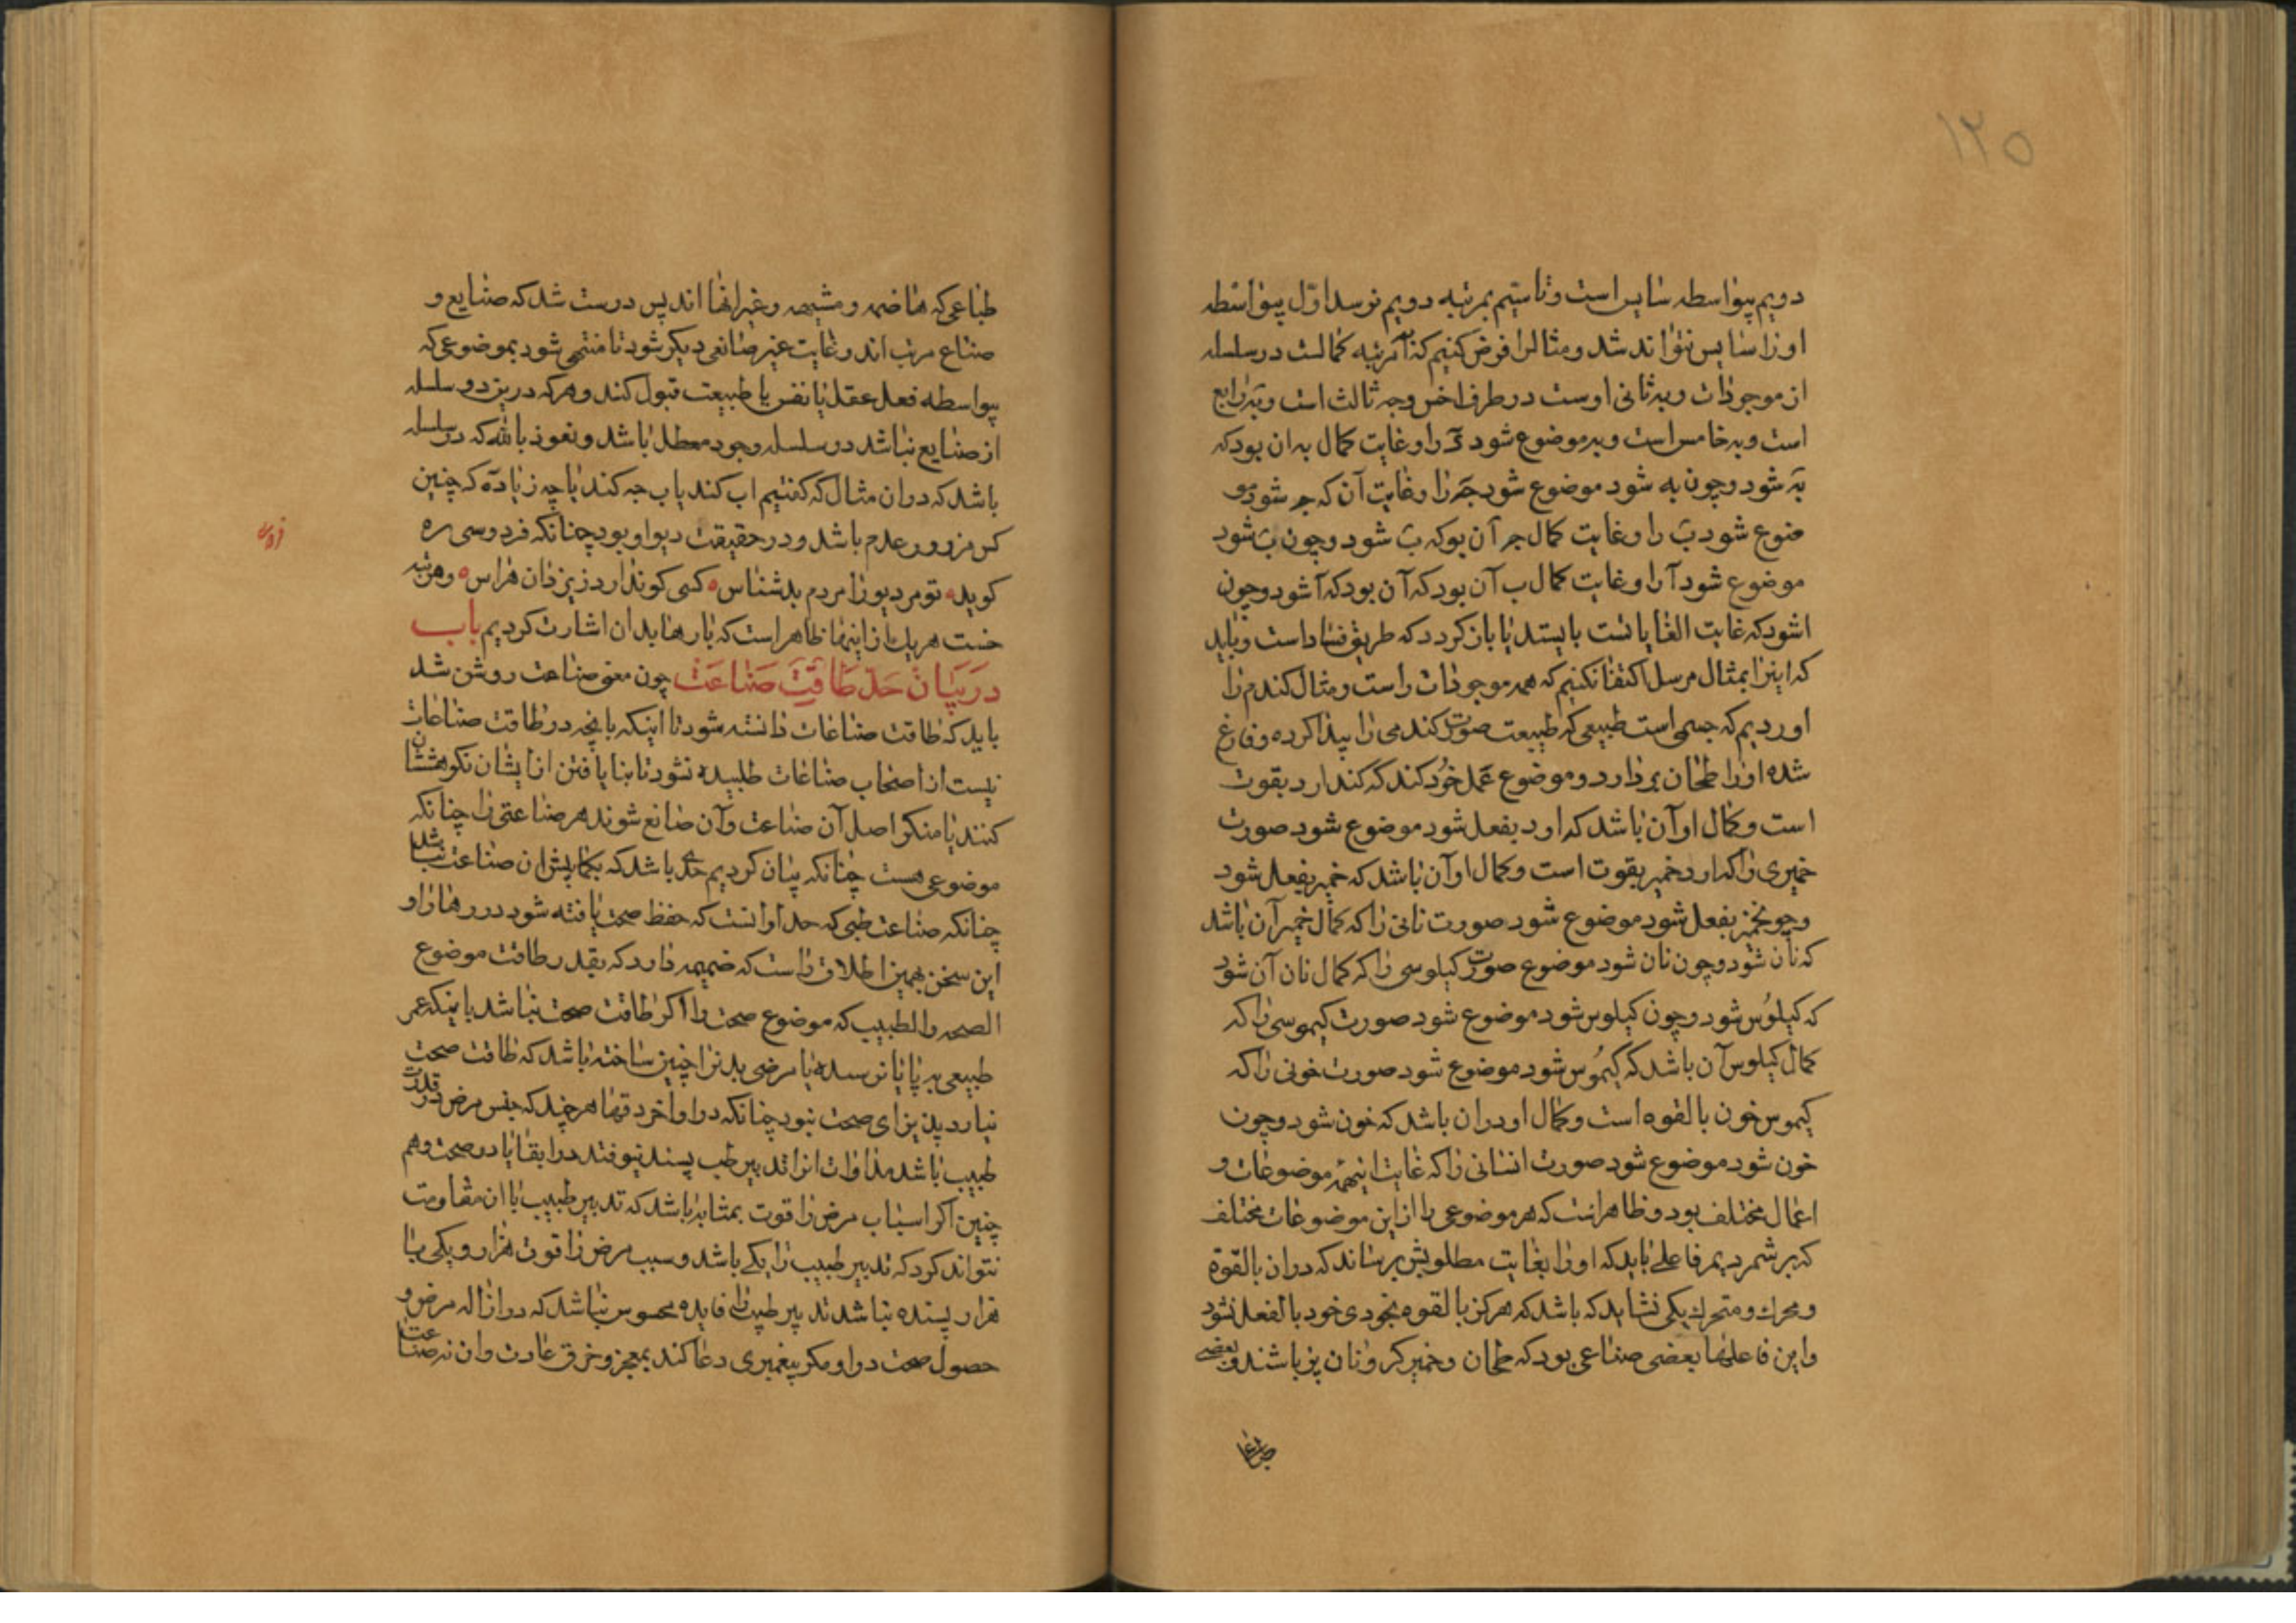 ۱۲۵
دویم بیواسطه سایر است و تا سیّم بمرتبه دویم نرسد اوّل بیواسطه
او را سایس نتواند شد و مثال را فرض کنیم که آ مرتبه کمالست در سلسله
از موجودات و به ثانی اوست در طرف اخس و جه ثالث است و ته رابع
است و به خامس است و به موضوع شود را و غایت کمال به ان بود که
ته شود و چون به شود موضوع شود جه را و غایت آن که جه شود مو
ضوع شود ب را و غایت کمال جه آن بو که ب شود و چون ب شود
موضوع شود آ را و غایت کمال ب آن بود که آن بود که آ شود و چون
اشود که غایت الغایاتست بایستد یا بازگردد که طریق فساد است و باید
که اینرا بمثال مرسل اکتفا نکنیم که همه موجودات راست و مثال کندم را
اوردیم که جسمی است طبیعی که طبیعت صورت کندمی را پیدا کرده و فارغ
شده او را طحان بردارد و موضوع عمل خود کند که کندم ارد بقوت
است و کمال او آن باشد که ارد بفعل شود موضوع شود صورت
خمیری را که ارد خمیر بقوت است و کمال او آن باشد که خمیر بفعل شود
و چو نخمیر بفعل شود موضوع شود صورت نانی را که کمال خمیر آن باشد
که نان شود و چون نان شود موضوع صورت کیلوسی را که کمال نان آن شود
که کیلوس شود و چون کیلوس شود موضوع شود صورت کیموسی را که
کمال کیلوس آن باشد که کیموس شود موضوع شود صورت خونی را که
کیموس خون بالقوه است و کمال او دران باشد که خون شود و چون
خون شود موضوع شود صورت انسانی را که غایت اینهمه موضوعات و
اعمال مختلف بود و ظاهرست که هر موضوعی را از این موضوعات مختلف
که بر شمردیم فاعلی باید که او را بغایت مطلوبش برساند که دران بالقوة
و محرک و متحرک یکی نشاید که باشد که هرکز بالقوه بخودی خود بالفعل نشود
و این فاعلها بعضی صناعی بود که طحان و خمیر کر و نان پز باشند و بعضی
طباعی که هاضمه و مشبهه و غیرانها اند پس درست شد که صنایع و
صناع مرتب اند و غایت غیر صانعی دیکر شود تا منتهی شود بموضوعی که
بیواسطه فعل عقل یا نفس یا طبیعت قبول کند و هرکه درین دو سلسله
از صنایع نباشد در سلسله وجود معطل باشد و نعوذ بالله که در سلسله
باشد که دران مثال که کفتیم اب کند یا ب جه کند یا چه زیاده که چنین
کس مزور و عدم باشد و در حقیقت دیو او بود چنانکه فردوسی ره
کوید ه تو مر دیو را مردم بد شناس ه کسی کو ندارد ز یزدان هراس ه و مرتبه
خست هر یک از اینها ظاهر است که بارها بدان اشارت کردیم باب
در بیان حد طاقت صناعت چون معنی صناعت روشن شد
باید که طاقت صناعات دانسته شود تا اینکه بانچه در طاقت صناعات
نیست از اصحاب صناعات طلبیده نشود تا بنایافتن از ایشان نکوهششان
کنند یا منکر اصل آن صناعت و آن صانع شوند هر صناعتی را چنانکه
موضوعی هست چنانکه بیان کردیم حدی باشد که بکما بیش ان صناعت نباشد
چنانکه صناعت طبی که حد او انست که حفظ صحت یافته شود در رها را و
این سخن بهمین اطلاق راست که ضمیمه دارد که بقدر طاقت موضوع
الصحه والطبیب که موضوع صحت را اکر طاقت صحت نباشد باینکه عمر
طبیعی به پایان رسیده یا مرضی بدنرا چنین ساخته باشد که طاقت صحت
نیارد پذیرای صحت نبود چنانکه در اواخر دقها هر چند که جنس مرض در قدرت
طبیب باشد مداوات انرا تدبیر طب پسند نیوفتد در ابقا یا در صحت و هم
چنین اکر اسباب مرض را قوت بمثابه باشد که تدبیر طبیب با ان مقاومت
نتواند کرد که تدبیر طبیب را یکی باشد و سبب مرض را قوت هزار و یکی با
هزار بسنده نباشد تدبیر طبیب را فایده محسوس نباشد که در ازاله مرض و
حصول صحت در او مکر پیغمبری دعا کند بمعجز و خرق عادت وان نه صناعت